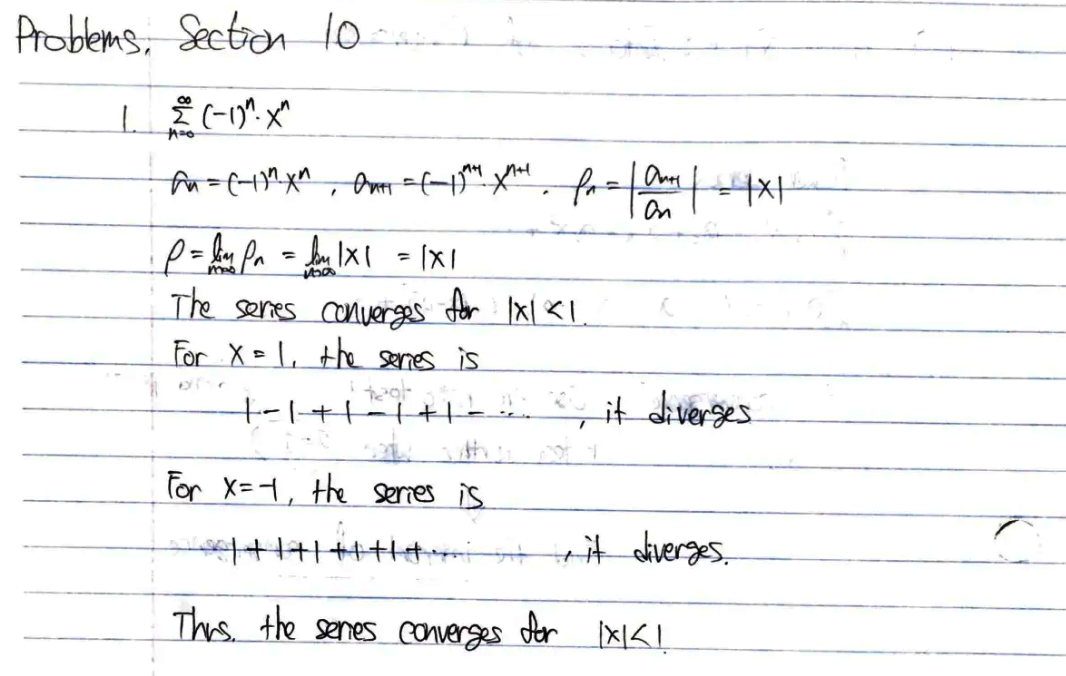 Problems, Section 10
1. $\sum_{n=0}^{\infty} (-1)^n \cdot x^n$
$a_n = (-1)^n \cdot x^n$, $a_{n+1} = (-1)^{n+1} \cdot x^{n+1}$. $\rho_n = \left| \frac{a_{n+1}}{a_n} \right| = |x|$
$\rho = \lim_{n \to \infty} \rho_n = \lim_{n \to \infty} |x| = |x|$
The series converges for $|x| < 1$.
For $x = 1$, the series is
$1 - 1 + 1 - 1 + 1 - \cdots$, it diverges
For $x = -1$, the series is
$1 + 1 + 1 + 1 + 1 + \cdots$, it diverges.
Thus, the series converges for $|x| < 1$